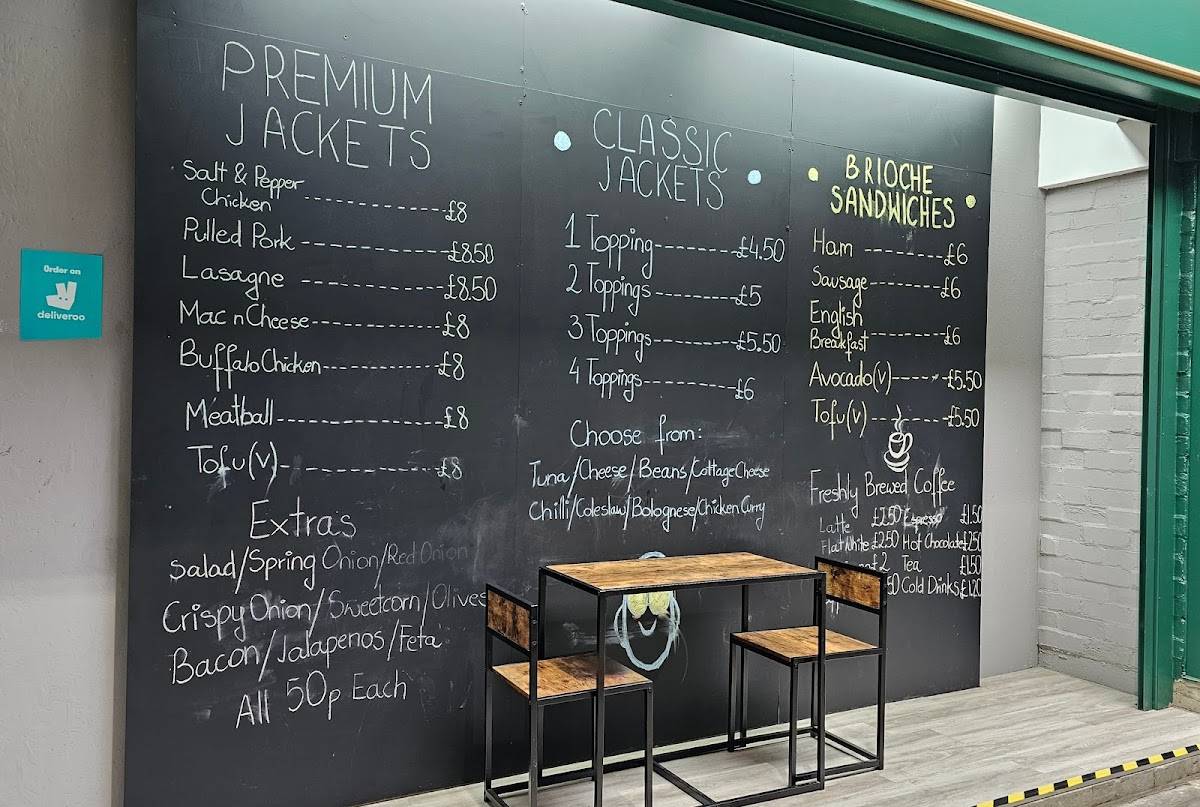 Order on
deliveroo
PREMIUM
JACKETS
Salt & Pepper
Chicken ---- £8
Pulled Pork ---- £8.50
Lasagne ---- £8.50
Mac n Cheese ---- £8
Buffalo Chicken ---- £8
Meatball ---- £8
Tofu (v) ---- £8
Extras
Salad/Spring Onion/Red Onion
Crispy Onion/Sweetcorn/Olives
Bacon/Jalapenos/Feta
All 50p Each
CLASSIC
JACKETS
1 Topping ---- £4.50
2 Toppings ---- £5
3 Toppings ---- £5.50
4 Toppings ---- £6
Choose from:
Tuna/Cheese/Beans/Cottage Cheese
Chilli/Coleslaw/Bolognese/Chicken Curry
BRIOCHE
SANDWICHES
Ham ---- £6
Sausage ---- £6
English
Breakfast ---- £6
Avocado (v) ---- £5.50
Tofu (v) ---- £5.50
Freshly Brewed Coffee
Latte £2.50 Espresso £1.50
Flat White £2.50 Hot Chocolate £2.50
£2 Tea £1.50
Cold Drinks £1.20